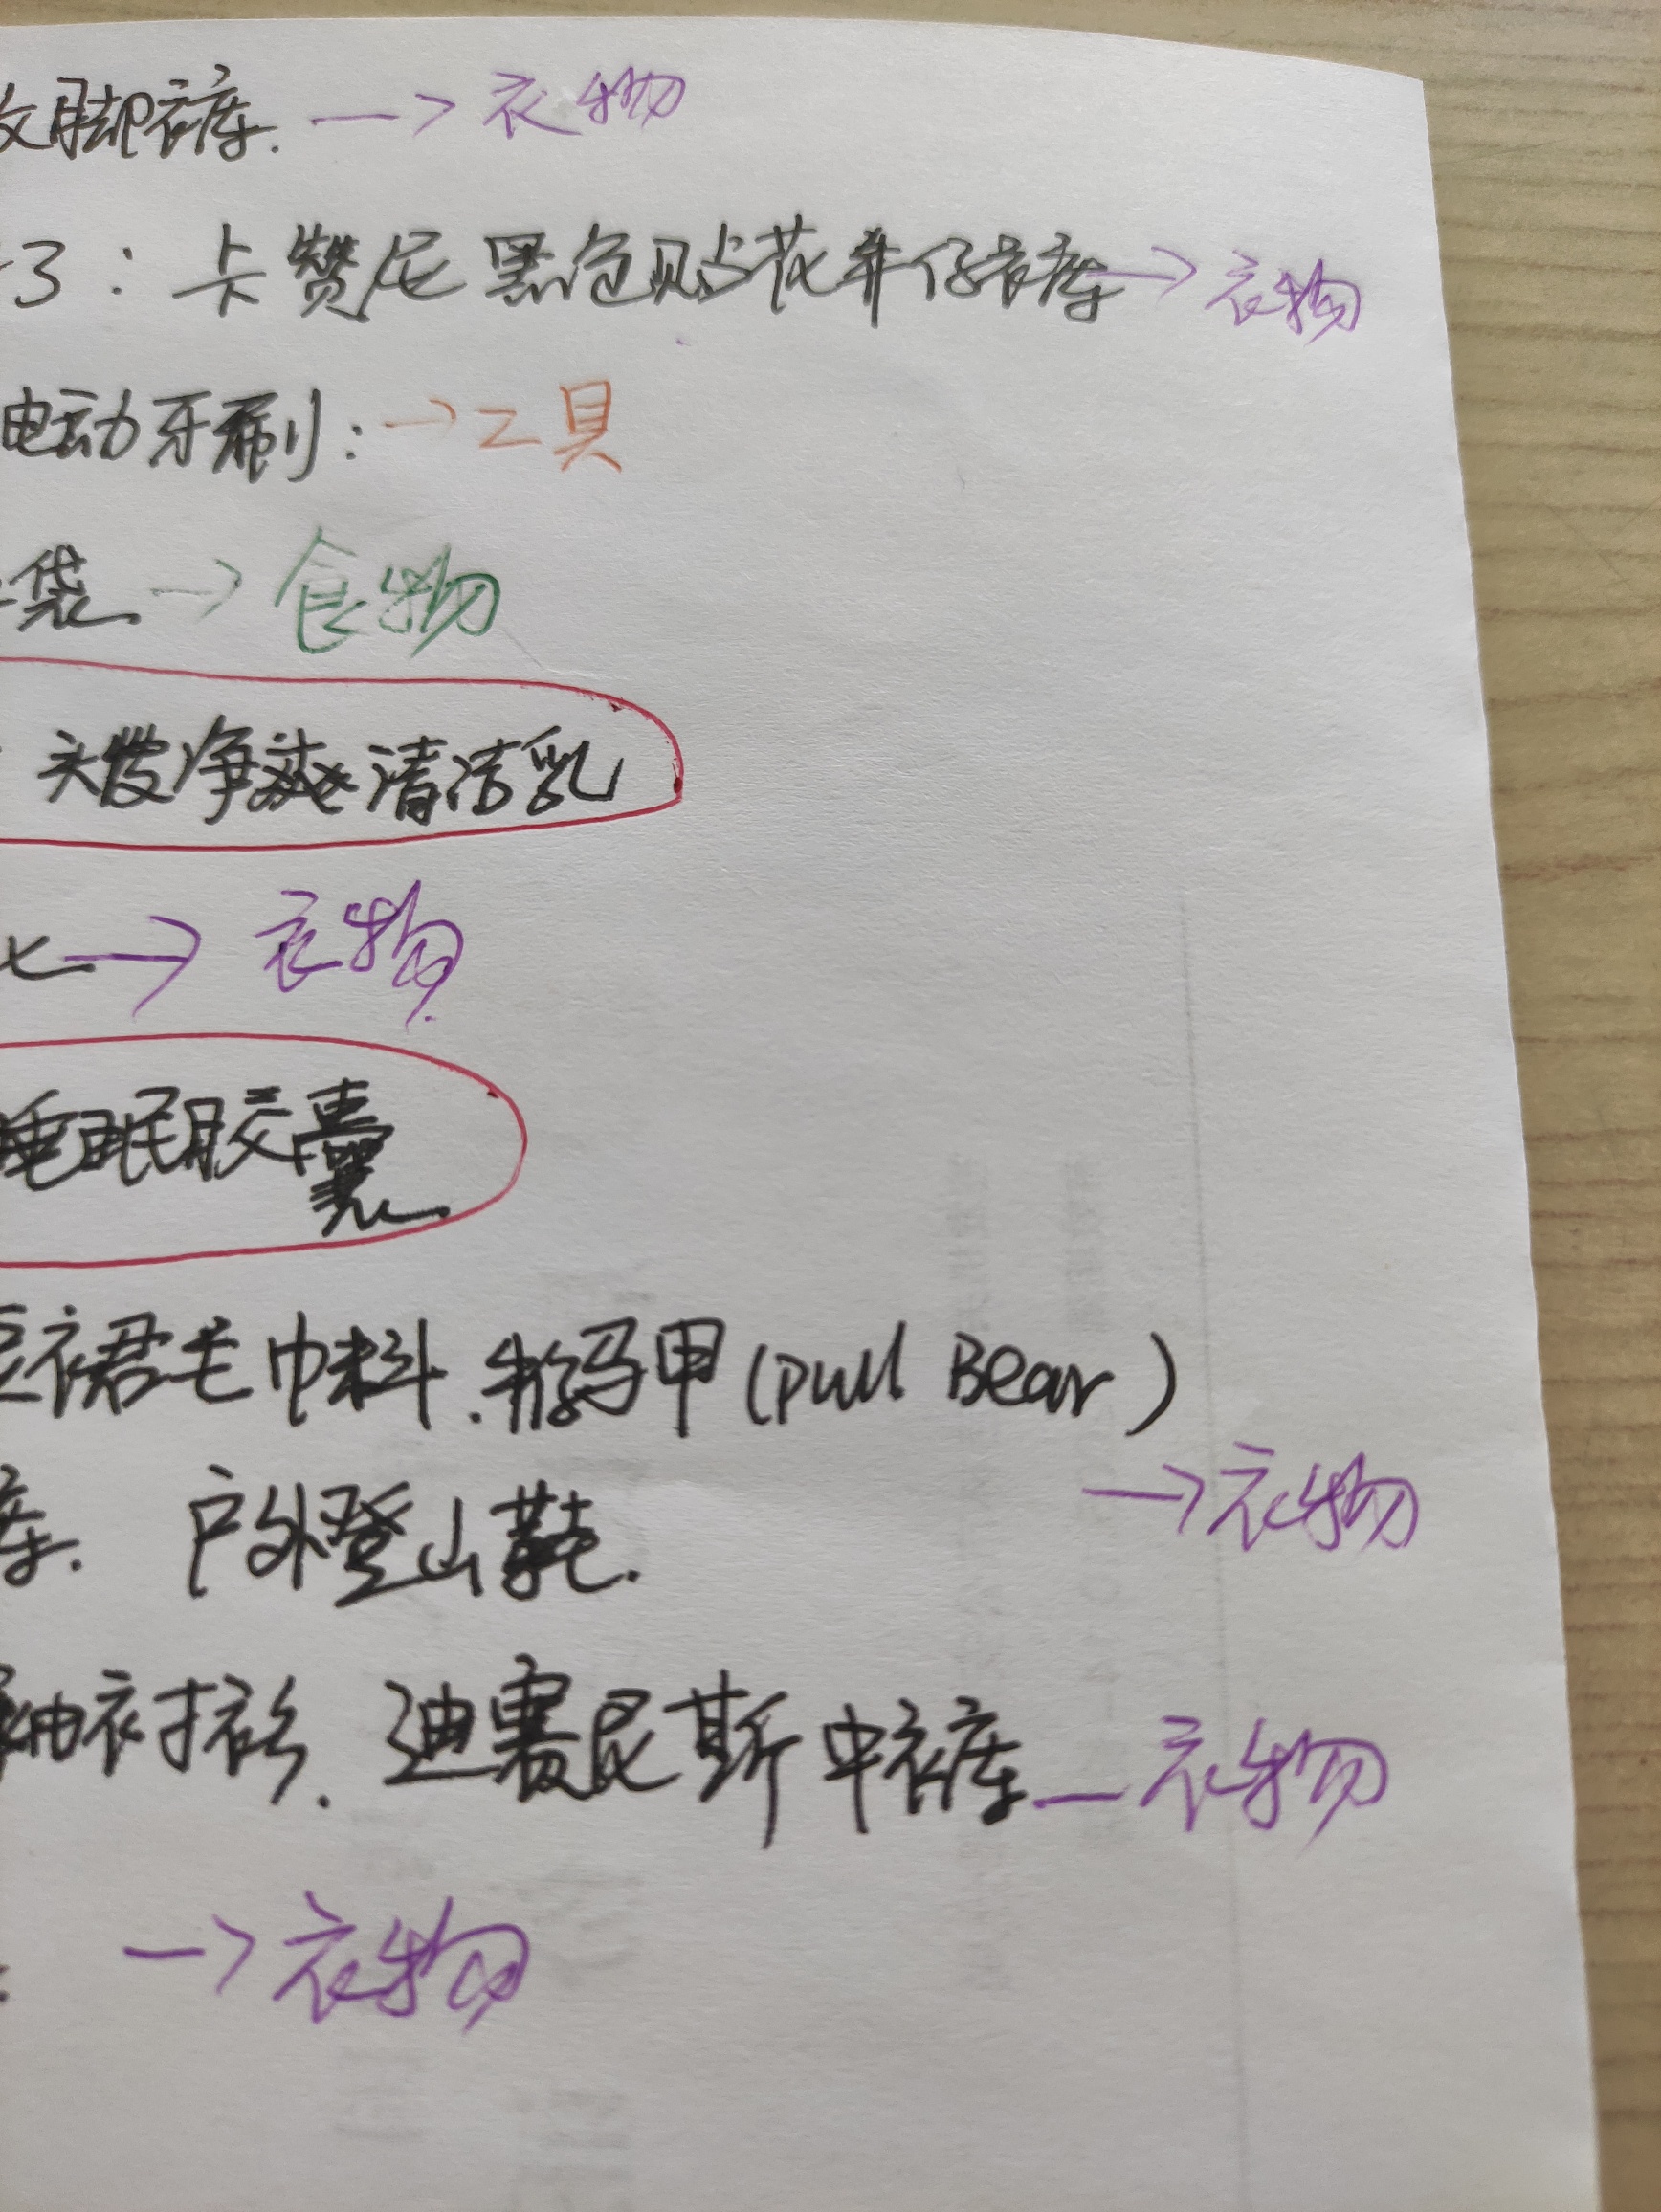 脚裤. → 衣物
3: 卡赞尼黑色贴花牛仔裤 → 衣物
电动牙刷: → 工具
袋 → 食物
头发净爽清洁乳
→ 衣物
睡眠胶囊
裙毛巾料. 马甲 (pull Bear)
→ 衣物
裤. 户外登山鞋.
袖衬衫. 迪赛尼斯中裤 — 衣物
→ 衣物